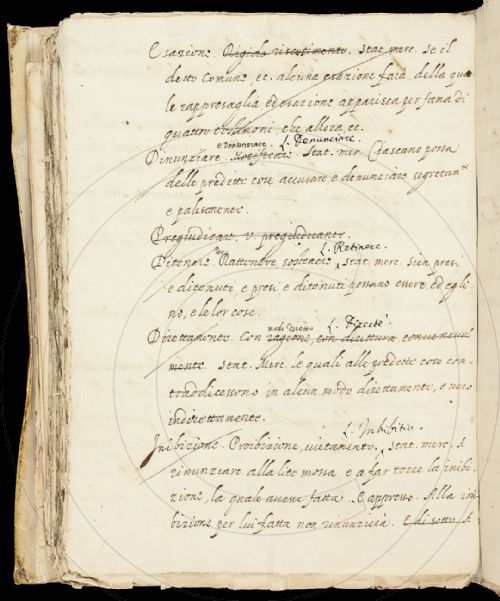 Esazione. Rigido riscotimento. Stat. merc. Se il
detto Comune, ec. alcuna esazione farà, della qua
le rappresaglia ed esazione apparisca per fama di
quattro testimoni, che allora, ec.
e Denunziare. L. Denunciare.
Dinunziare. Notificare. Stat. mer. Ciascano possa
delle predette cose accusare, e denunziare segretamte
e palesemente.
Pregiudicare. v. pregiudicante.
L. Retinere.
Ditenere. Rattenere, sostenere. Stat. merc. Sien presi
e ditenuti, e presi e ditenuti possano essere ed egli
no, e le lor cose.
modo diretto L. Directè
Direttamente. Con ragione, con dirittura convenevol
mente. Stat. Merc. le quali alle predette cose con
traddicessono in alcun modo direttamente, o vero
indirettamente.
L. Inhibitio.
Inibizione. Proibizione, vietamento. Stat. merc. A
rinunziare alla lite mossa e a far torre la inibi
zione, la quale avesse fatta. E appresso. Alla ini
bizione per lui fatta non rinunzierà. E di sotto. A